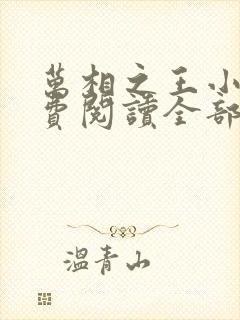 萬相之王小
費閱讀全部
溫青山